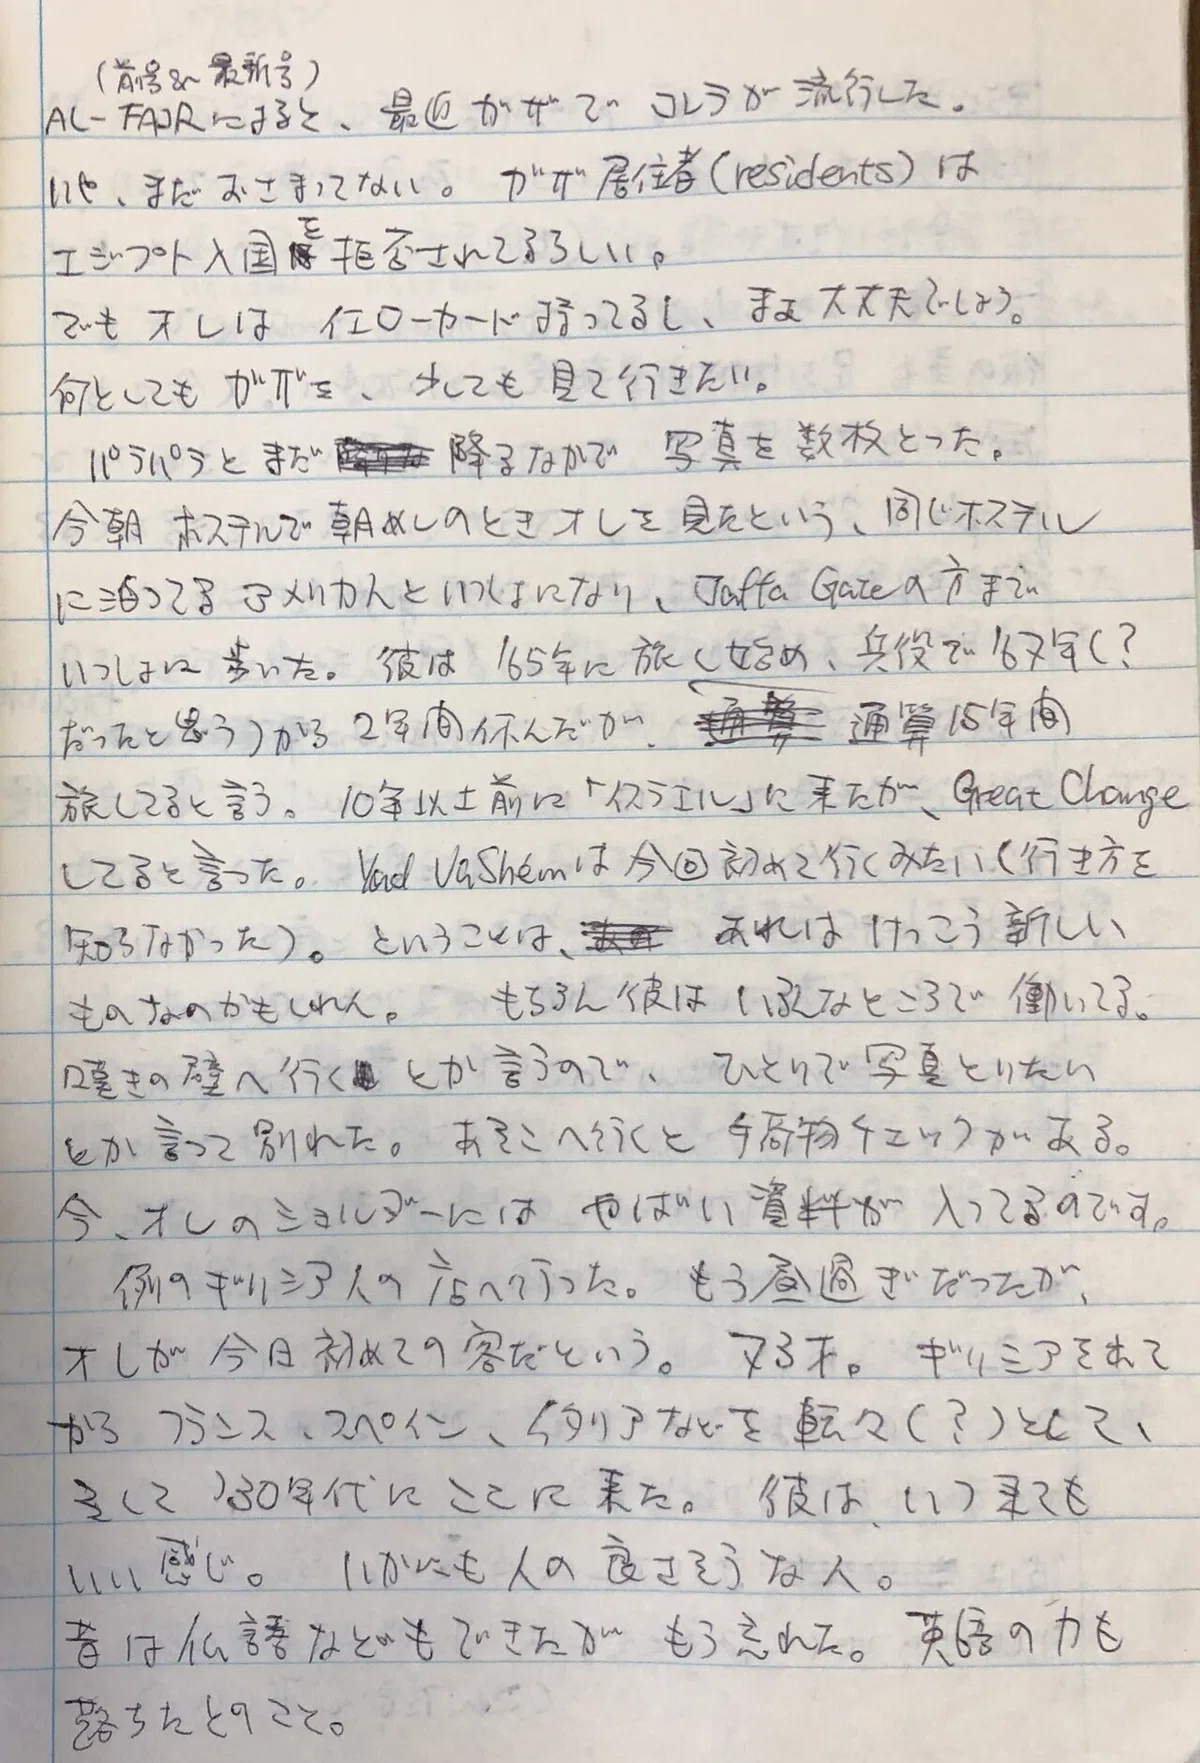 (前号&最新号)
AL-FAJRによると、最近ガザでコレラが流行した。
いや、まだおさまってない。ガザ居住者(residents)は
エジプト入国を拒否されてるらしい。
でもオレはイエローカード持ってるし、まぁ大丈夫でしょう。
何としてもガザを、少しでも見て行きたい。
パラパラとまだ降るなかで写真を数枚とった。
今朝ホステルで朝めしのときオレを見たという、同じホステル
に泊ってるアメリカンといっしょになり、Jaffa Gateの方まで
いっしょに歩いた。彼は'65年に旅し始め、兵役で'67年(?
だったと思う)から2年間休んだが、通算15年間
旅してると言う。10年以上前に「イスラエル」に来たが、Great Change
してると言った。Yad VaShemは今回初めて行くみたい(行き方を
知らなかった)。ということは、あれはけっこう新しい
ものなのかもしれん。もちろん彼はいろんなところで働いてる。
嘆きの壁へ行くとか言うので、ひとりで写真とりたい
とか言って別れた。あそこへ行くと手荷物チェックがある。
今、オレのショルダーにはやばい資料が入ってるのです。
例のギリシア人の店へ行った。もう昼過ぎだったが、
オレが今日初めての客だという。ギリシアをおれて
からフランス、スペイン、イタリアなどを転々(?)として、
そして'30年代にここに来た。彼は、いつ来ても
いい感じ。いかにも人の良さそうな人。
昔は仏語などもできたがもう忘れた。英語の力も
落ちたとのこと。